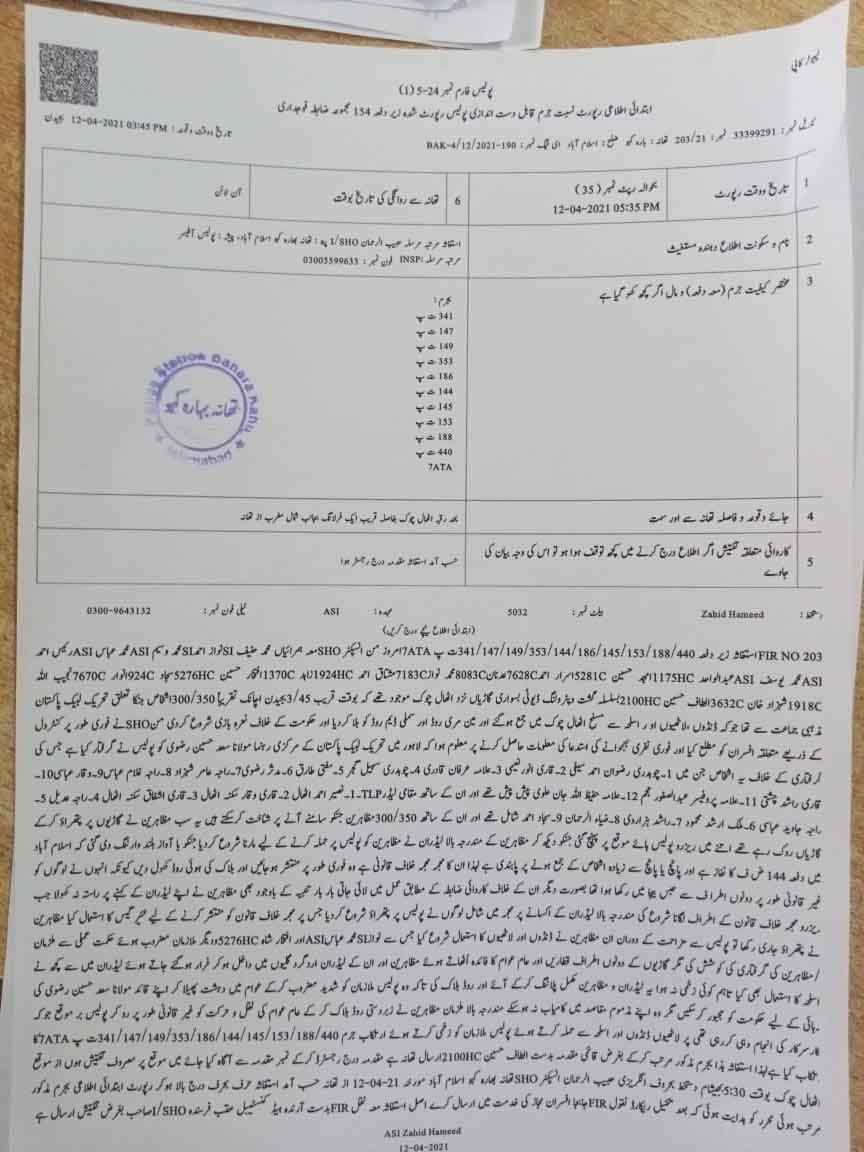 کمپیوٹر کاپی
پولیس فارم نمبر 24-5 (1)
ابتدائی اطلاعی رپورٹ نسبت جرم قابل دست اندازی پولیس رپورٹ شدہ زیر دفعہ 154 مجموعہ ضابطہ فوجداری
سیریل نمبر: 33399291 نمبر: 203/21 تھانہ: بارہ کہو ضلع: اسلام آباد ای ٹیگ نمبر: BAK-4/12/2021-190 تاریخ ووقت وقوعہ: 12-04-2021 03:45 PM بجیدن
1 تاریخ ووقت رپورٹ بحوالہ رپٹ نمبر (35) 12-04-2021 05:35 PM
6 تھانہ سے روانگی کی تاریخ بوقت آن لائن
2 نام و سکونت اطلاع دہندہ مستغیث استغاثہ مرتبہ مرسلہ حبیب الرحمان I/SHO پتہ: تھانہ بھارہ کہو اسلام آباد، پیشہ: پولیس آفیسر
مرتبہ مرسلہ: INSP فون نمبر: 03005599633
3 مختصر کیفیت جرم (معہ دفعہ) و مال اگر کچھ کھو گیا ہے
بجرم:
341 ت پ
147 ت پ
149 ت پ
353 ت پ
186 ت پ
144 ت پ
145 ت پ
153 ت پ
188 ت پ
440 ت پ
7ATA
Police Station Banara Kahu
تھانہ بہارہ کہو
Islamabad
4 جائے وقوعہ و فاصلہ تھانہ سے اور سمت بحد رقبہ اٹھال چوک بفاصلہ قریب ایک فرلانگ بجانب شمال مغرب از تھانہ
5 کاروائی متعلقہ تفتیش اگر اطلاع درج کرنے میں کچھ توقف ہوا ہو تو اس کی وجہ بیان کی جاوے حسب آمد استغاثہ مقدمہ درج رجسٹر ہوا
دستخط: Zahid Hameed بیلٹ نمبر: 5032 عہدہ: ASI ٹیلی فون نمبر: 0300-9643132
(ابتدائی اطلاع نیچے درج کریں)
FIR NO 203 استغاثہ زیر دفعہ 341/147/149/353/144/186/145/153/188/440 ت پ 7ATA امروز من انسپکٹر SHO معہ ہمرائیاں محمد حنیف SI نواز احمد SI محمد وسیم ASI محمد عباس ASI رئیس احمد
ASI محمد یوسف ASI عبدالواحد 1175HC امجد حسین 5281C اسرار احمد 7628C عدنان 8083C محمد نواز 7183C مشتاق احمد 1924HC زاہد 1370C افتخار حسین 5276HC سجاد 924C انوار 7670C نجیب اللہ
1918C شہزاد خان 3632C الطاف حسین 2100HC بسلسلہ گشت وپٹرولنگ ڈیوٹی بسواری گاڑیاں نزد اٹھال چوک موجود تھے کہ بوقت قریب 3/45 بجیدن اچانک تقریباً 300/350 اشخاص جنکا تعلق تحریک لبیک پاکستان
مذہبی جماعت سے تھا جوکہ ڈنڈوں، لاٹھیوں اور اسلحہ سے مسلح اٹھال چوک میں جمع ہوگئے اور مین مری روڈ اور سملی ڈیم روڈ کو بلاک کردیا اور حکومت کے خلاف نعرہ بازی شروع کردی من SHO نے فوری طور پر کنٹرول
کے ذریعے متعلقہ افسران کو مطلع کیا اور فوری نفری بھجوانے کی استدعا کی معلومات حاصل کرنے پر معلوم ہوا کہ لاہور میں تحریک لبیک پاکستان کے مرکزی رہنما مولانا سعد حسین رضوی کو پولیس نے گرفتار کیا ہے جس کی
گرفتاری کے خلاف یہ اشخاص جن میں 1۔ چوہدری رضوان احمد سیفی 2۔ قاری انور نعیمی 3۔ علامہ عرفان قادری 4۔ چوہدری سہیل گجر 5۔ مفتی طارق 6۔ مدثر رضوی 7۔ راجہ عامر شہزاد 8۔ راجہ غلام عباس 9۔ وقار عباسی 10۔
قاری راشد چشتی 11۔ علامہ پروفیسر عبدالصفور نجم 12۔ علامہ حفیظ اللہ جان علوی پیش پیش تھے اور ان کے ساتھ مقامی لیڈر TLP۔ 1۔ نصیر احمد اٹھال 2۔ قاری وقار سکنہ اٹھال 3۔ قاری اشفاق سکنہ اٹھال 4۔ راجہ عدیل 5۔
راجہ جاوید عباسی 6۔ ملک ارشد محمود 7۔ راشد ہزاروی 8۔ ضیاء الرحمان 9۔ سجاد احمد شامل تھے اور ان کے ساتھ 300/350 مظاہرین جنکو سامنے آنے پر شناخت کرسکتے ہیں یہ سب مظاہرین نے گاڑیوں پر پتھراؤ کرکے
گاڑیاں روک رہے تھے اتنے میں ریزرو پولیس ہائے موقع پر پہنچ گئی جنکو دیکھ کر مظاہرین کے مندرجہ بالا لیڈران نے مظاہرین کو پولیس پر حملہ کرنے کے لیے مارنا شروع کردیا جنکو با آواز بلند وارننگ دی گئی کہ اسلام آباد
میں دفعہ 144 ض ف کا نفاذ ہے اور پانچ یا پانچ سے زیادہ اشخاص کے جمع ہونے پر پابندی ہے لہذا ان کا مجمع مجمع خلاف قانونی ہے وہ فوری طور پر منتشر ہوجائیں اور بلاک کی ہوئی روڈ کھول دیں کیونکہ انہوں نے لوگوں کو
غیر قانونی طور پر دونوں اطراف سے حبس بیجا میں رکھا ہوا تھا بصورت دیگر ان کے خلاف کاروائی ضابطہ کے مطابق عمل میں لائی جاتی بار بار تنبیہ کے باوجود بھی مظاہرین نے اپنے لیڈران کے کہنے پر راستہ نہ کھولا جب
ریزرو مجمع خلاف قانون کے اطراف لگانا شروع کی مندرجہ بالا لیڈران کے اکسانے پر مجمع میں شامل لوگوں نے پولیس پر پتھراؤ شروع کردیا جس پر مجمع خلاف قانون کو منتشر کرنے کے لیے شیر گیس کا استعمال کیا مظاہرین
نے پتھراؤ جاری رکھا تو پولیس سے مزاحمت کے دوران ان مظاہرین نے ڈنڈوں اور لاٹھیوں کا استعمال شروع کیا جس سے نواز SI محمد عباس ASI اور افتخار شاہ 5276HC ودیگر ملازمان مضروب ہوئے حکمت عملی سے ملزمان
/مظاہرین کی گرفتاری کی کوشش کی مگر گاڑیوں کے دونوں اطراف قطاریں اور عام عوام کا فائدہ اٹھاتے ہوئے مظاہرین اور ان کے لیڈران اردگرد گلیوں میں داخل ہوکر فرار ہوگئے جاتے ہوئے لیڈران میں سے کچھ نے
اسلحہ کا استعمال بھی کیا تاہم کوئی زخمی نہ ہوا یہ لیڈران و مظاہرین مکمل پلاننگ کرکے آئے اور روڈ بلاک کی تاکہ وہ پولیس ملازمان کو شدید مضروب کرکے عوام میں دہشت پھیلا کر اپنے قائد مولانا سعد حسین رضوی کی
رہائی کے لیے حکومت کو مجبور کرسکیں مگر وہ اپنے مذموم مقاصد میں کامیاب نہ ہوسکے مندرجہ بالا ملزمان مظاہرین نے زبردستی روڈ بلاک کرکے عام عوام کی نقل و حرکت کو غیر قانونی طور پر رو کر پولیس پر موقع جوکہ
کارسرکار کی انجام دہی کررہی تھی پر لاٹھیوں ڈنڈوں اور اسلحہ سے حملہ کرتے ہوئے پولیس ملازمان کو زخمی کرتے ہوئے ارتکاب جرم 341/147/149/353/186/144/145/153/188/440 ت پ 7ATA کا
تکاب کیا ہے لہذا استغاثہ ہذا بجرم مذکور مرتب کرکے بغرض قائمی مقدمہ بدست الطاف حسین 2100HC ارسال تھانہ ہے مقدمہ درج رجسٹرڈ کرکے نمبر مقدمہ سے آگاہ کیا جائے میں موقع پر مصروف تفتیش ہوں از موقع
اٹھال چوک بوقت 5:30 بجیشام دستخط بحروف انگریزی حبیب الرحمان انسپکٹر SHO تھانہ بھارہ کہو اسلام آباد مورخہ 12-04-21 از تھانہ حسب آمد استغاثہ حرف بحرف درج بالا ہوکر رپورٹ ابتدائی اطلاعی بجرم مذکور
مرتب ہوئی محرر کو ہدایت ہوئی کہ بعد تکمیل ریکارڈ نقول FIR بجانب افسران مجاز کی خدمت میں ارسال کرے اصل استغاثہ معہ نقل FIR بدست آرندہ ہیڈ کنسٹیبل عقب فرستندہ I/SHO صاحب بغرض تفتیش ارسال ہے
ASI Zahid Hameed
12-04-2021